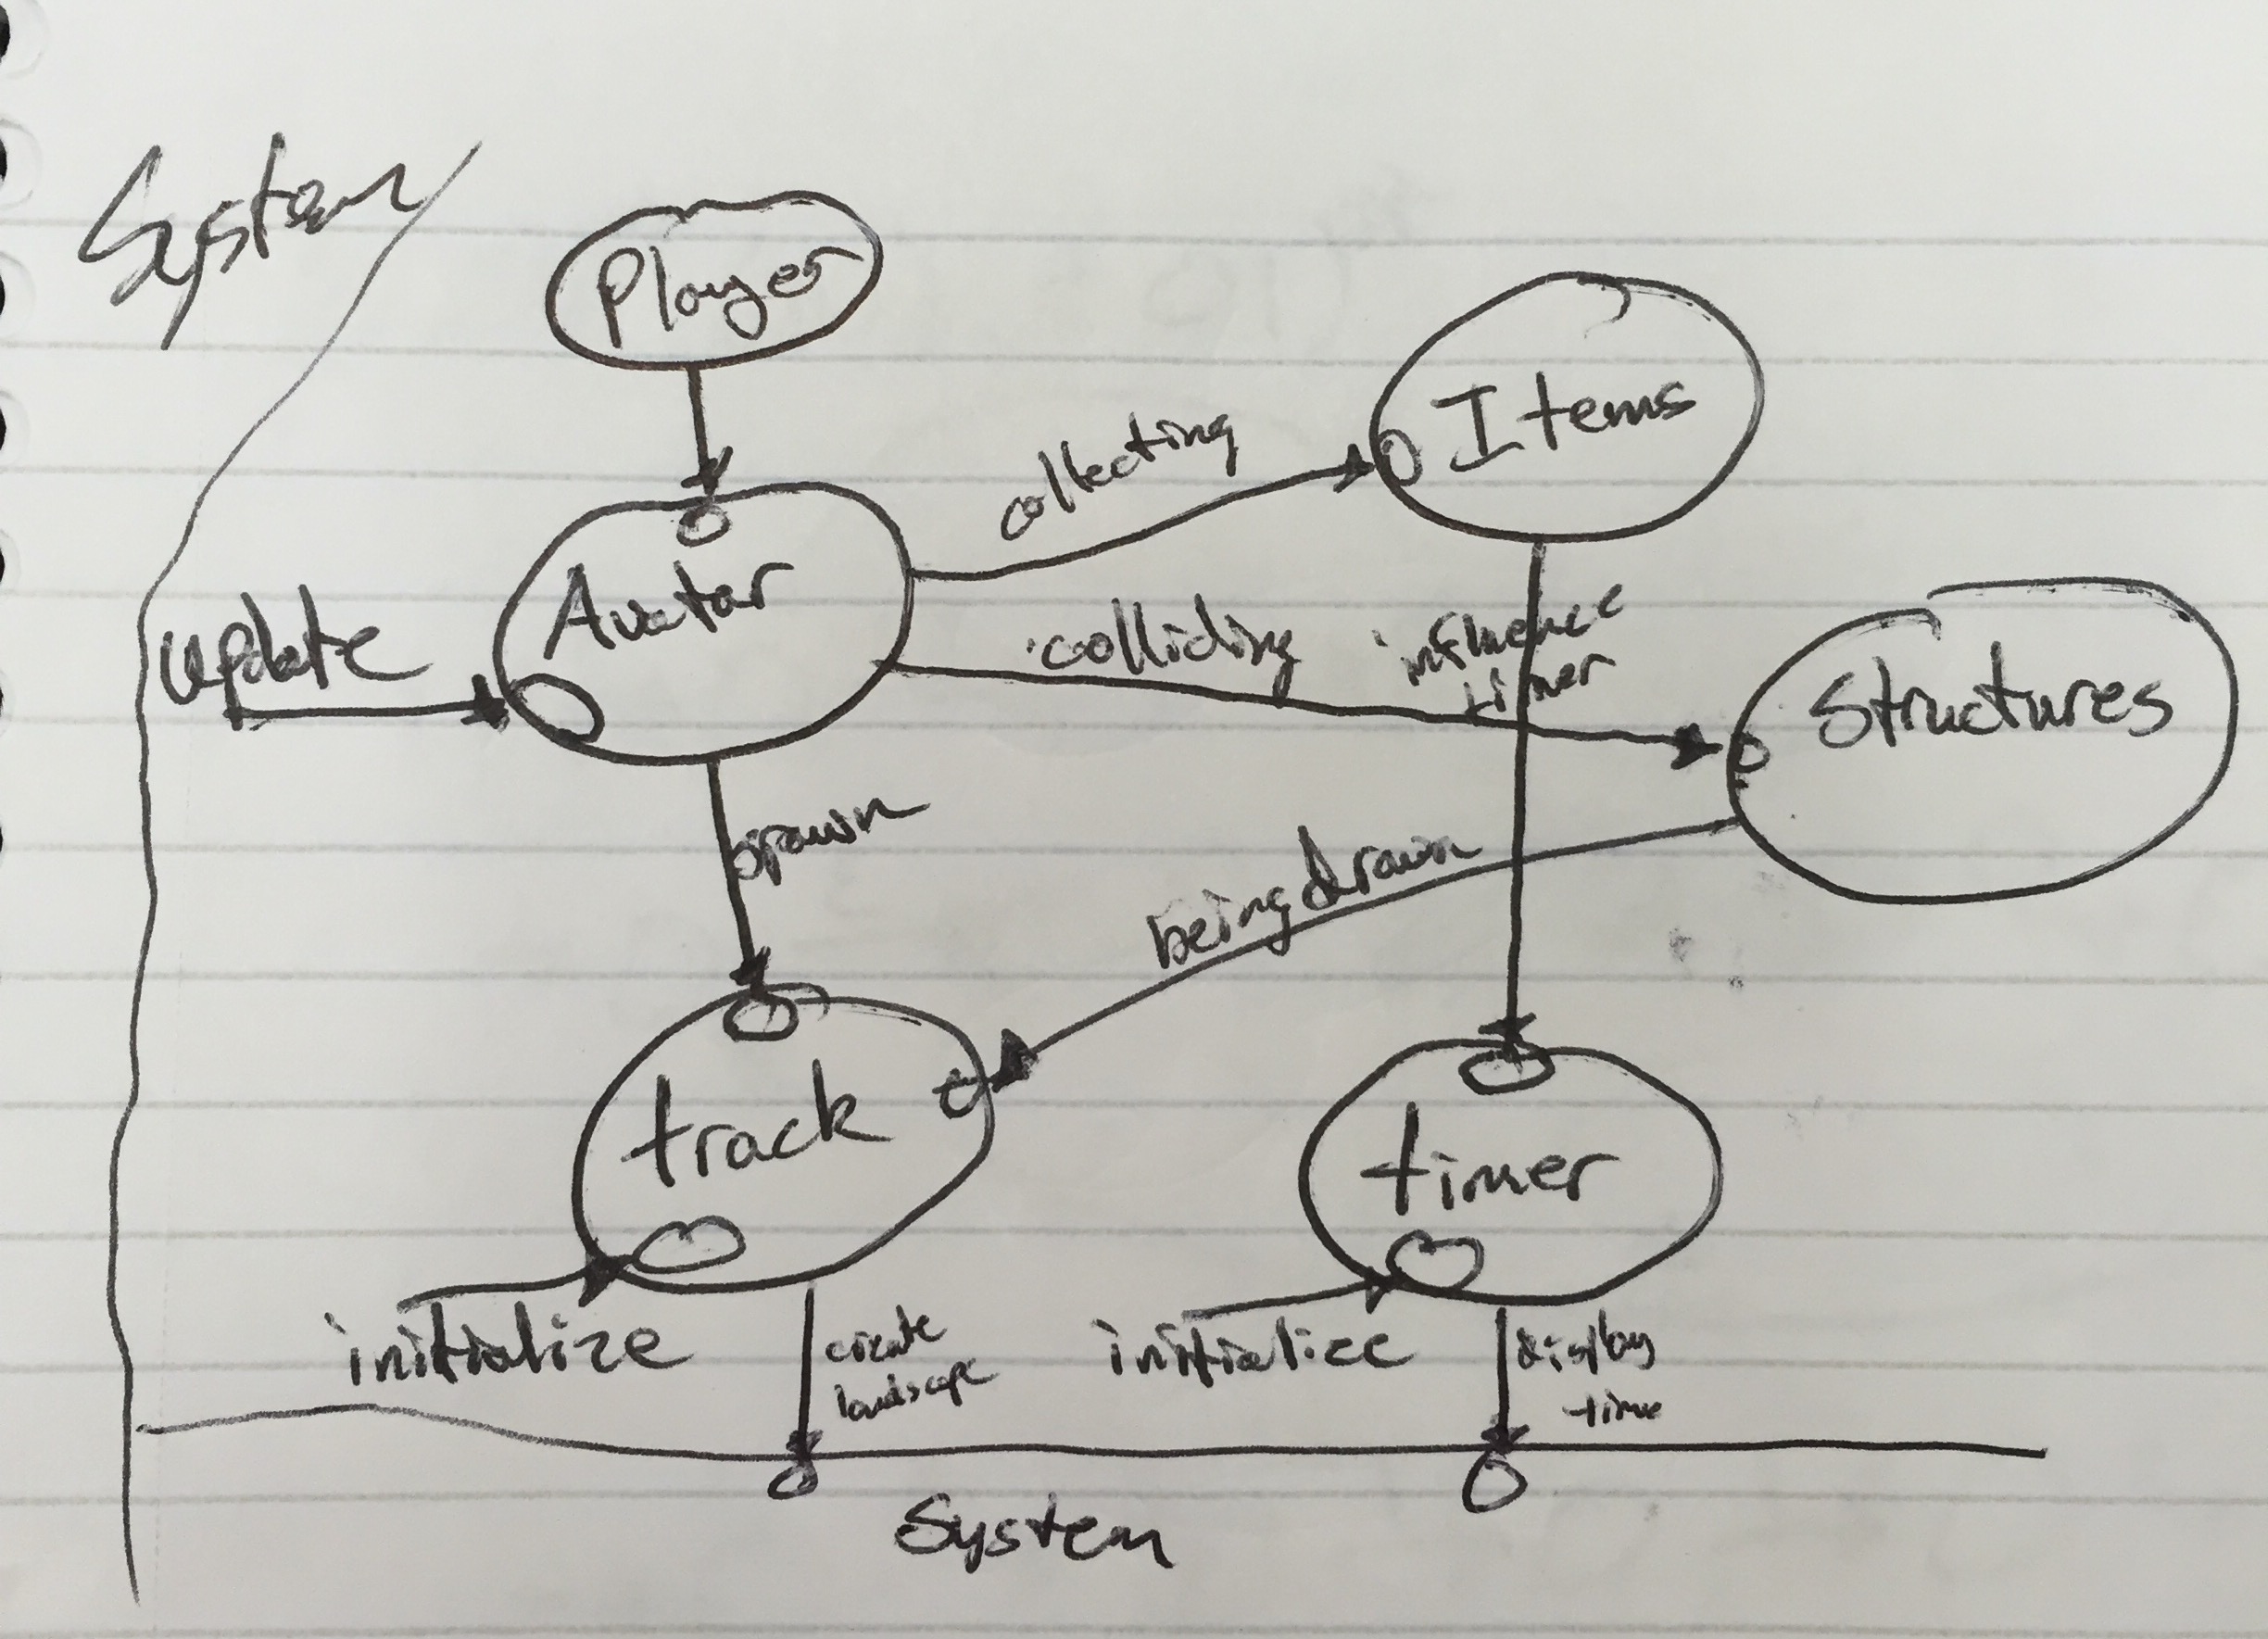 System
Player
Items
collecting
Avatar
update
colliding
influence
timer
Structures
spawn
being drawn
track
timer
initialize
create
landscape
initialize
display
time
System